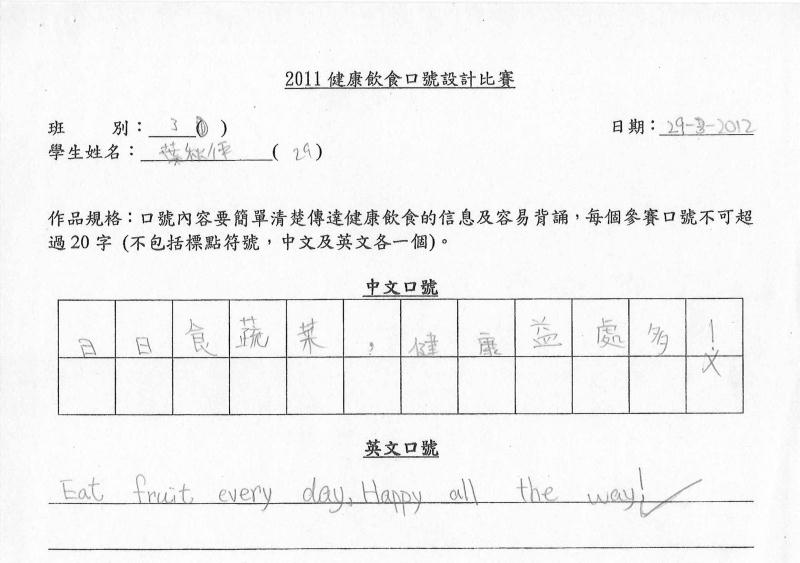 2011 健康飲食口號設計比賽
班 別：3( )
日期：29-3-2012
學生姓名：葉(29)
作品規格：口號內容要簡單清楚傳達健康飲食的信息及容易背誦，每個參賽口號不可超
過 20 字 (不包括標點符號，中文及英文各一個)。
中文口號
日日食蔬菜，健康益處多！
英文口號
Eat fruit every day, Happy all the way!